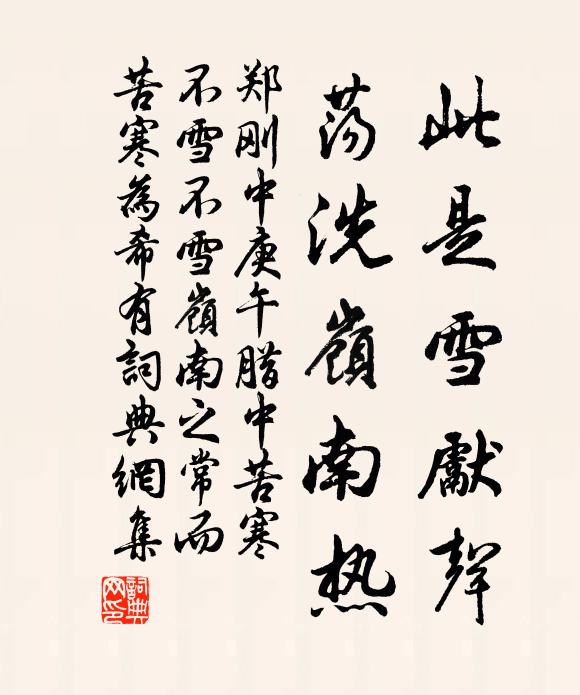 此是雪獻聲
荡洗嶺南热
郑刚中庚午腊中苦寒
不雪不雪嶺南之常而
苦寒為希有詞典網集
詞典网印